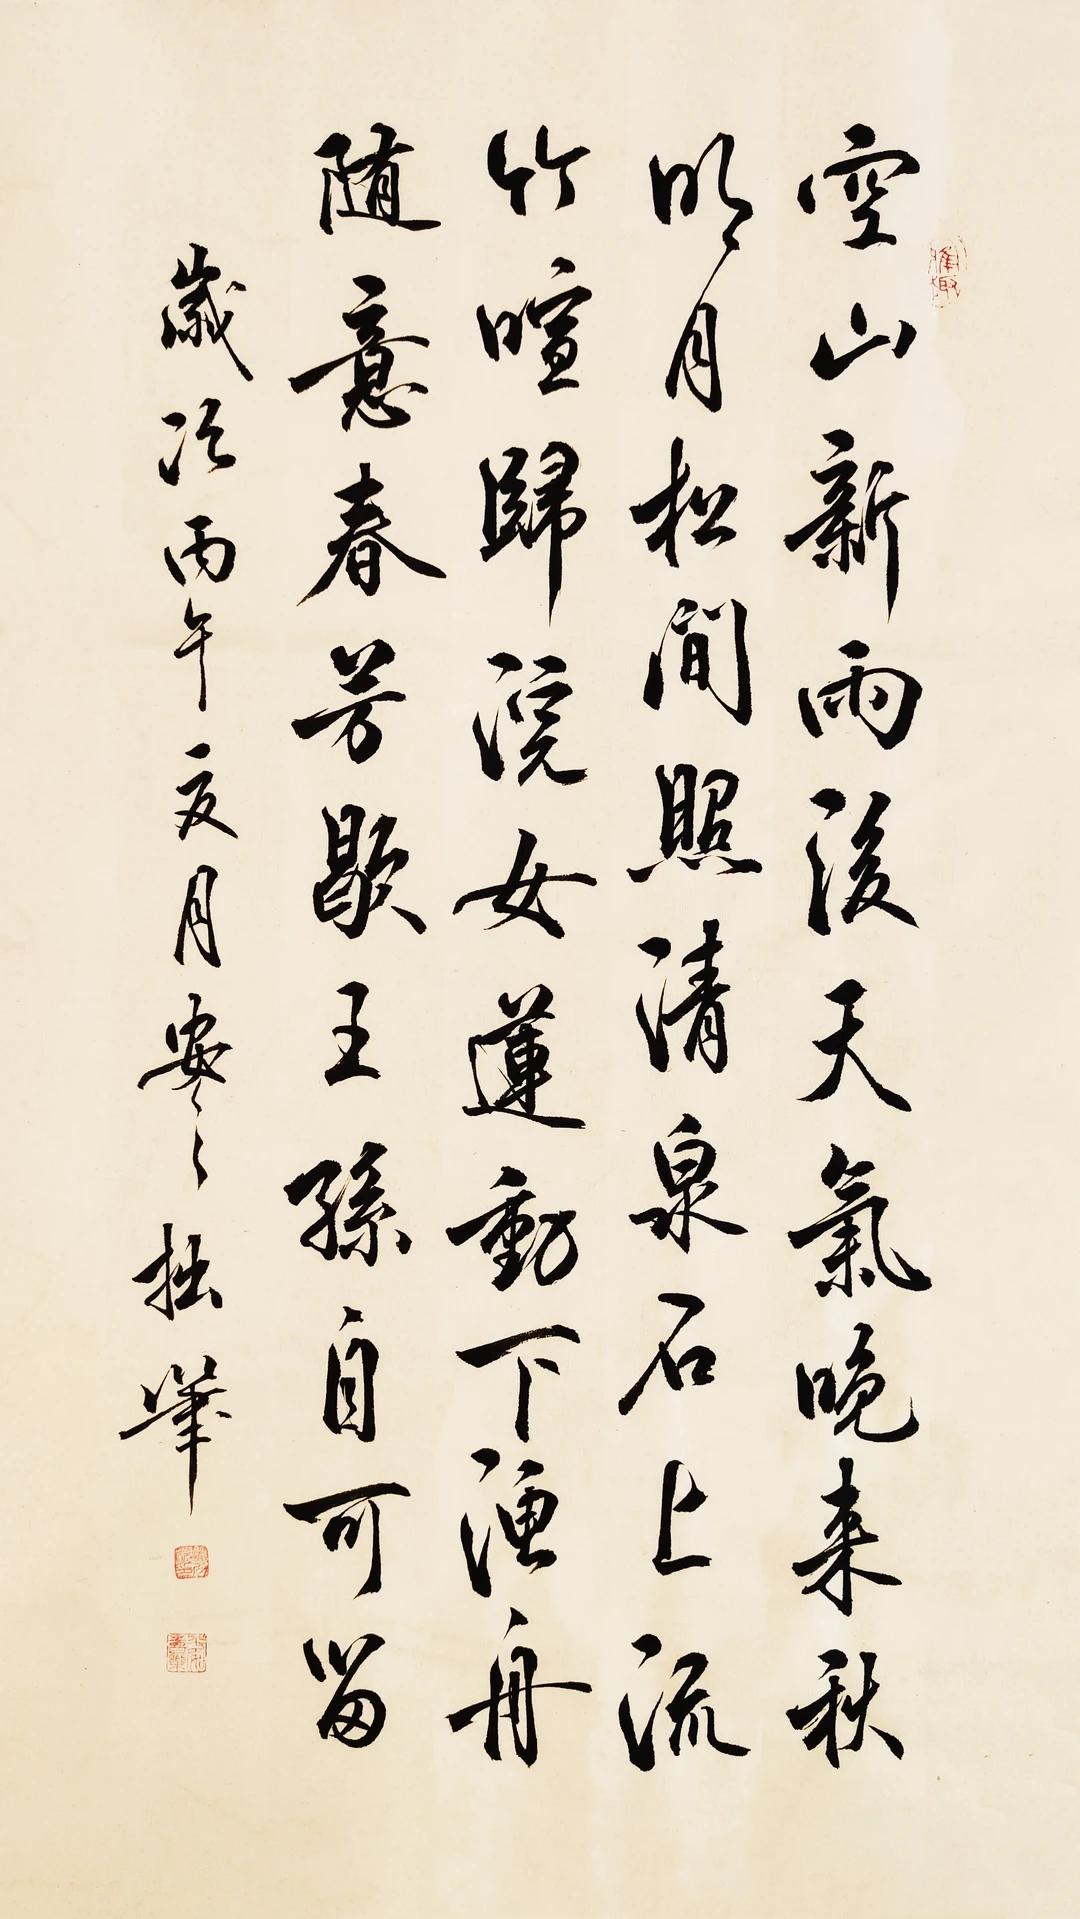 空山新雨後天氣晚来秋
明月松間照清泉石上流
竹喧歸浣女蓮動下漁舟
随意春芳歇王孫自可留
歲次丙午夏月安之拙筆
雅趣